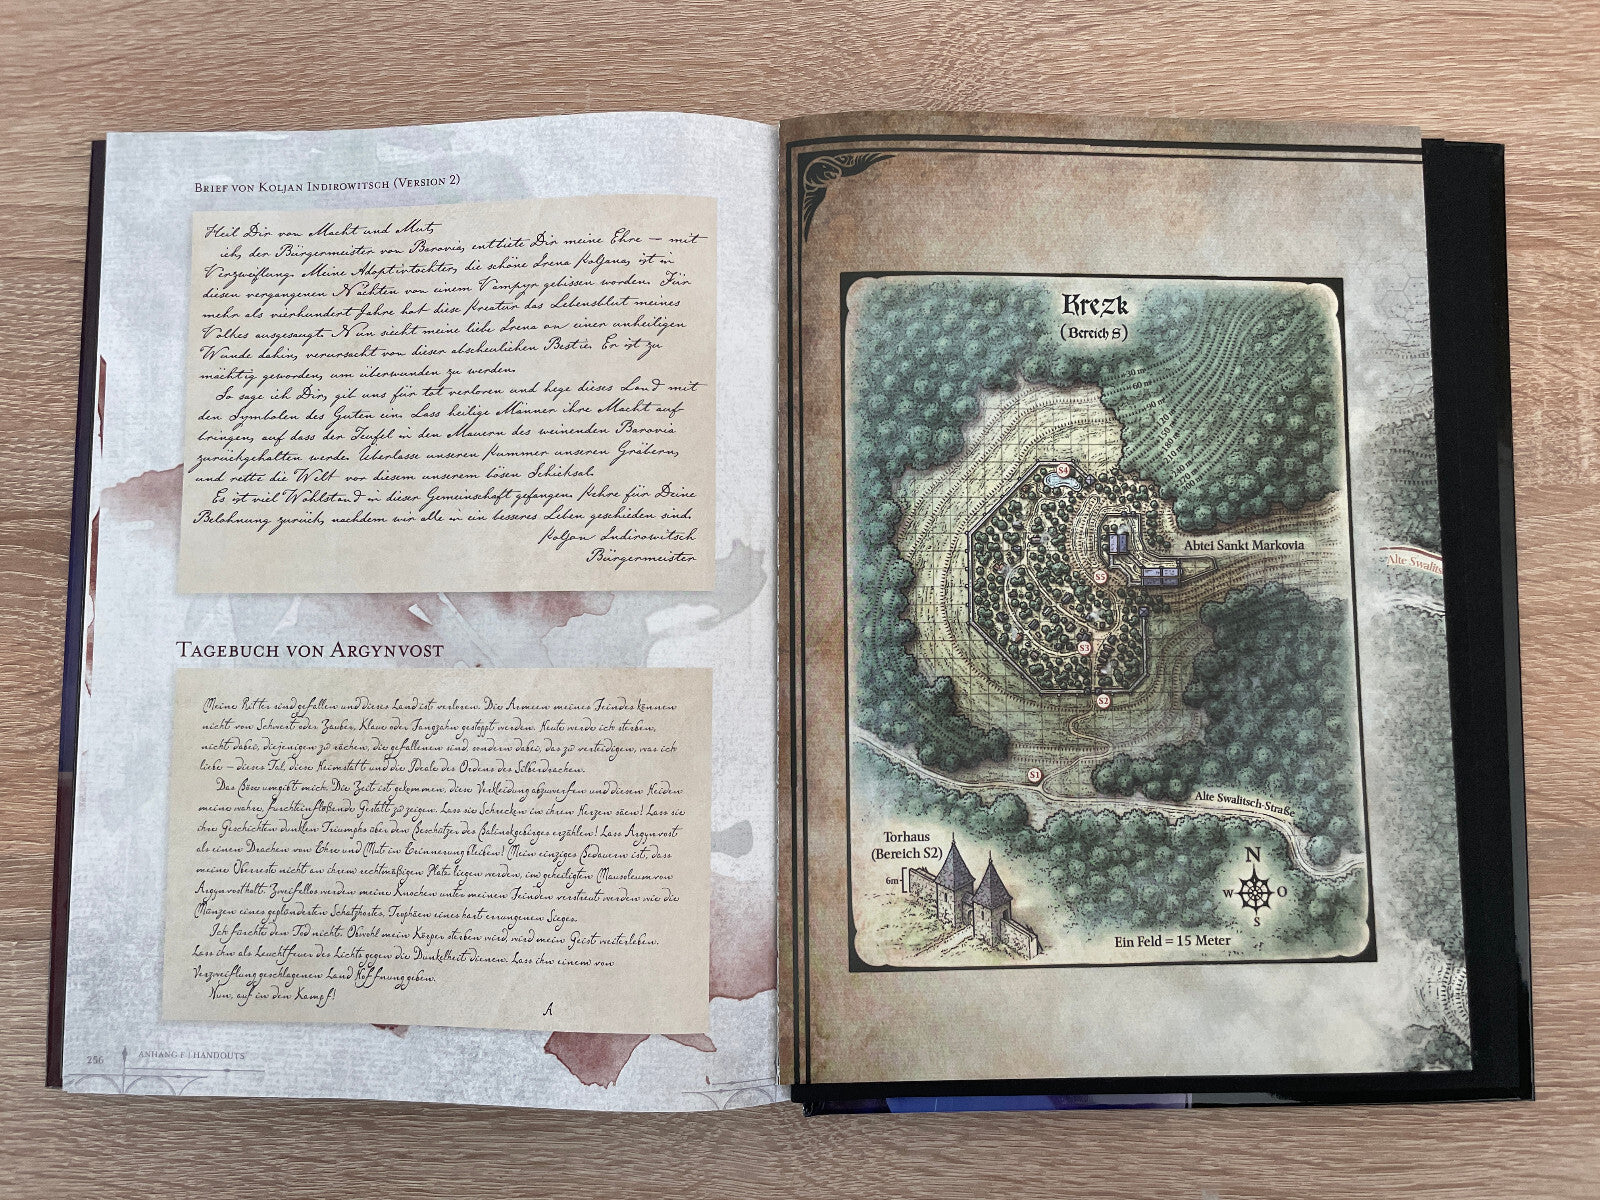 Brief von Koljan Indirowitsch (Version 2)
Heil Dir von Macht und Mut,
ich, der Bürgermeister von Barovia, entbiete Dir meine Ehre – mit
Verzweiflung. Meine Adoptivtochter, die schöne Irena Koljana, ist in
diesen vergangenen Nächten von einem Vampyr gebissen worden. Für
mehr als vierhundert Jahre hat diese Kreatur das Lebensblut meines
Volkes ausgesaugt. Nun siecht meine liebe Irena an einer unheiligen
Wunde dahin, verursacht von dieser abscheulichen Bestie. Er ist zu
mächtig geworden, um überwunden zu werden.
So sage ich Dir, gib uns für tot verloren und hege dieses Land mit
den Symbolen des Guten ein. Lass heilige Männer ihre Macht auf-
bringen, auf dass der Teufel in den Mauern des weinenden Barovia
zurückgehalten werde. Überlasse unseren Kummer unseren Gräbern,
und rette die Welt vor diesem unserem bösen Schicksal.
Es ist viel Wohlstand in dieser Gemeinschaft gefangen. Kehre für Deine
Belohnung zurück, nachdem wir alle in ein besseres Leben geschieden sind.
Koljan Indirowitsch
Bürgermeister
Tagebuch von Argynvost
Meine Ritter sind gefallen und dieses Land ist verloren. Die Armeen meines Feindes können
nicht von Schwert oder Zauber, Klaue oder Fangzahn gestoppt werden. Heute werde ich sterben,
nicht dabei, diejenigen zu rächen, die gefallenen sind, sondern dabei, das zu verteidigen, was ich
liebe – dieses Tal, diese Heimstatt und die Ideale des Ordens des Silberdrachen.
Das Böse umgibt mich. Die Zeit ist gekommen, diese Verkleidung abzuwerfen und diesen Heiden
meine wahre, furchteinflößende Gestalt zu zeigen. Lass sie Schrecken in ihren Herzen säen! Lass sie
ihre Geschichten dunklen Triumphs über den Beschützer des Balinokgebirges erzählen! Lass Argynvost
als einem Drachen von Ehre und Mut in Erinnerung bleiben! Mein einziges Bedauern ist, dass
meine Überreste nicht an ihrem rechtmäßigen Platz liegen werden, im geheiligten Mausoleum von
Argynvostholt. Zweifellos werden meine Knochen unter meinen Feinden verstreut werden wie die
Münzen eines geplünderten Schatzhortes, Trophäen eines hart errungenen Sieges.
Ich fürchte den Tod nicht. Obwohl mein Körper sterben wird, wird mein Geist weiterleben.
Lass ihn als Leuchtfeuer des Lichts gegen die Dunkelheit dienen. Lass ihn einem von
Verzweiflung geschlagenen Land Hoffnung geben.
Nun, auf in den Kampf!
A
256
Anhang F | Handouts
Krezk
(Bereich S)
30 m
60 m
90 m
S4
Abtei Sankt Markovia
S5
S3
S2
S1
Alte Swalitsch-Straße
Torhaus
(Bereich S2)
6m
N
W
O
S
Ein Feld = 15 Meter
Alte Swalits